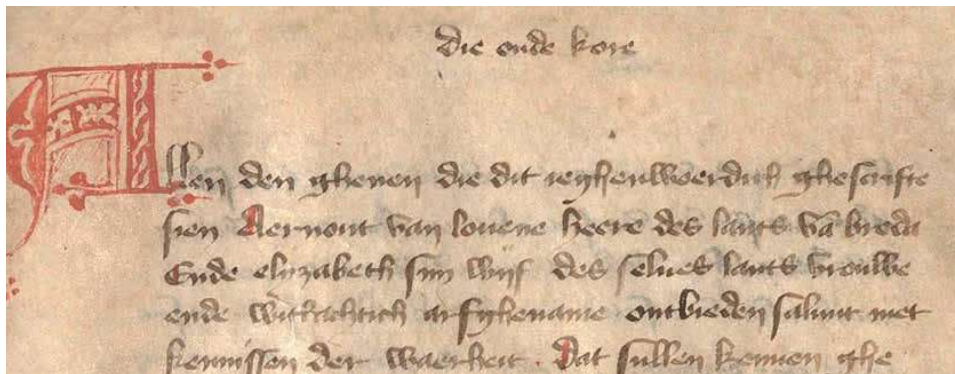 die oude kore
Allen den ghenen die dit ieghenwoerdich ghescrifte
sien Aernout van louene heere des lants vā breda
Ende elyzabeth sijn wijf des selues lants vrouwe
ende wittachtich arfghename ontbieden saluut met
kennissen der waerheit. Dat sullen kennen ghe